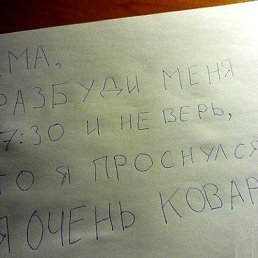 МА,
РАЗБУДИ МЕНЯ
7:30 И НЕ ВЕРЬ,
ТО Я ПРОСНУЛСЯ
Я ОЧЕНЬ КОВАР